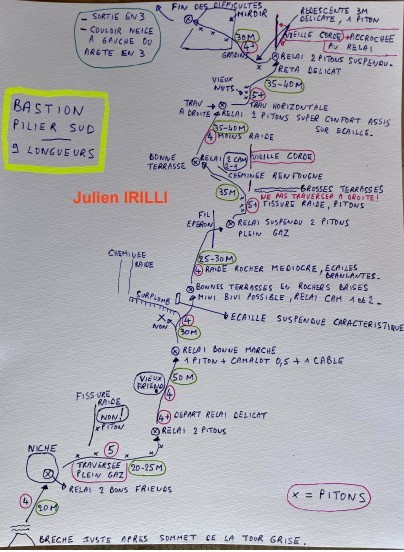 FIN DES DIFFICULTÉS
- SORTIE EN 3
- COULOIR NEIGE
À GAUCHE DU
ARETE EN 3
MIROIR
30M
4
GRADINS
REDESCENTE 3M
DELICATE, 1 PITON
VIEILLE CORDE → ACCROCHÉE
AU RELAI
RELAI 2 PITONS SUSPENDU
RETA DELICAT
VIEUX
NUTS
5+
35-40M
TRAV HORIZONTALE
TRAV
A DROITE
RELAI 2 PITONS SUPER CONFORT ASSIS
SUR ECAILLE.
35-40M
4 MOINS RAIDE
BASTION
PILIER SUD
9 LONGUEURS
BONNE
TERRASSE
RELAI
2 CAM
2-1
VIEILLE CORDE
CHEMINEE RENFOUGNE
35M
GROSSES TERRASSES
NE PAS TRAVERSER A DROITE!
5+ FISSURE RAIDE, PITONS
Julien IRILLI
FIL
EPERON
RELAI SUSPENDU 2 PITONS
PLEIN GAZ
25-30M
4 RAIDE ROCHER MEDIOCRE, ECAILES
BRANLANTES.
CHEMINEE
RAIDE
BONNES TERRASSES EN ROCHERS BRISES
MINI BIVI POSSIBLE, RELAI CAM 1 et 2.
SURPLOMB
NON
4
30M
ECAILLE SUSPENDUE CARACTERISTIQUE
RELAI BONNE MARCHE
1 PITON + CAMALOT 0,5 + 1 CABLE
VIEUX
FRIEND
50M
4
FISSURE
RAIDE
NON!
X PITON
4+ DEPART RELAI DELICAT
RELAI 2 PITONS
NICHE
5
TRAVERSEE
PLEIN GAZ
20-25M
RELAI 2 BONS FRIENDS
4
20M
X = PITONS
BRECHE JUSTE APRES SOMMET DE LA TOUR GRISE.